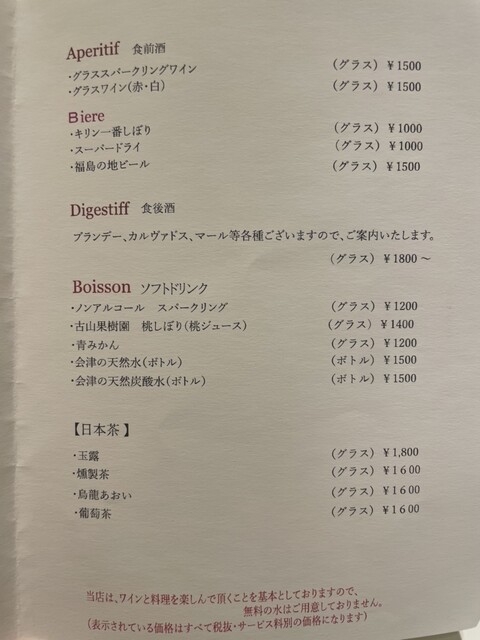 Aperitif 食前酒
・グラススパークリングワイン (グラス) ¥1500
・グラスワイン(赤・白) (グラス) ¥1500
Biere
・キリン一番しぼり (グラス) ¥1000
・スーパードライ (グラス) ¥1000
・福島の地ビール (グラス) ¥1500
Digestiff 食後酒
ブランデー、カルヴァドス、マール等各種ございますので、ご案内いたします。
(グラス) ¥1800～
Boisson ソフトドリンク
・ノンアルコール スパークリング (グラス) ¥1200
・古山果樹園 桃しぼり(桃ジュース) (グラス) ¥1400
・青みかん (グラス) ¥1200
・会津の天然水(ボトル) (ボトル) ¥1500
・会津の天然炭酸水(ボトル) (ボトル) ¥1500
【日本茶】
・玉露 (グラス) ¥1,800
・燻製茶 (グラス) ¥1600
・烏龍あおい (グラス) ¥1600
・葡萄茶 (グラス) ¥1600
当店は、ワインと料理を楽しんで頂くことを基本としておりますので、
無料の水はご用意しておりません。
(表示されている価格はすべて税抜・サービス料別の価格になります)